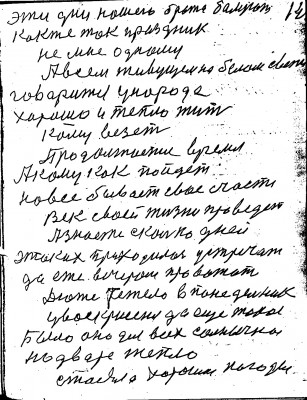 эти дни нашего брата балуют 12
Как те так праздник
не мне одному
А всем живущем на белом свети
говаривал у народа
хорошо и тепло жить
Кому везет
Продолжается время
А кому как пойдет
на все бывает свое счасти
Век своей жизни проведет
А знаете сколко дней
этаких приходилос встречат
да еже вечером провожат
Дюже тежело в понеделник
увоскрисеня да еще такое
Было оно дл всех солнечна
на дваре тепло
стаяла хорошия погода